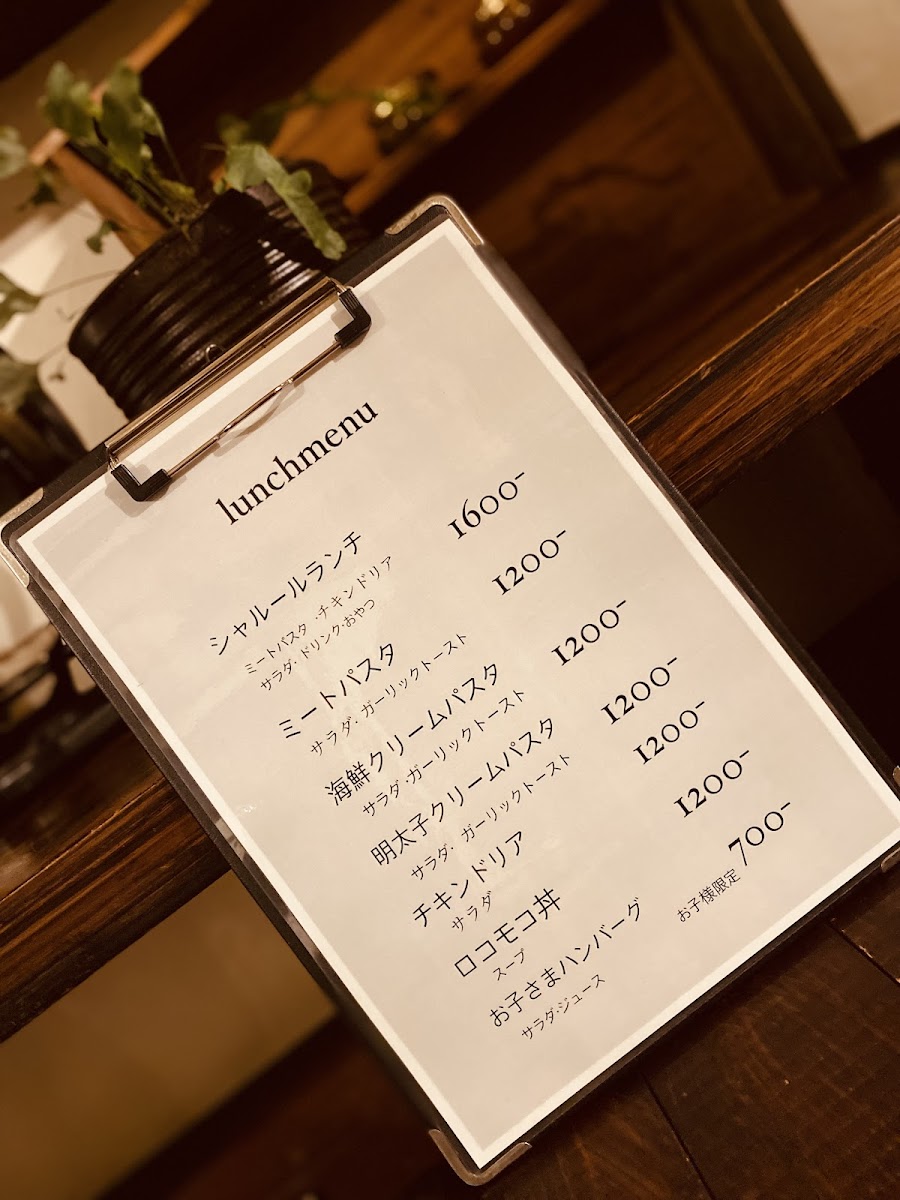 lunchmenu
シャルールランチ 1600-
ミートパスタ・チキンドリア
サラダ・ドリンク・おやつ
ミートパスタ 1200-
サラダ・ガーリックトースト
海鮮クリームパスタ 1200-
サラダ・ガーリックトースト
明太子クリームパスタ 1200-
サラダ・ガーリックトースト
チキンドリア 1200-
サラダ
ロコモコ丼 1200-
スープ
お子さまハンバーグ 700-
サラダ・ジュース
お子様限定